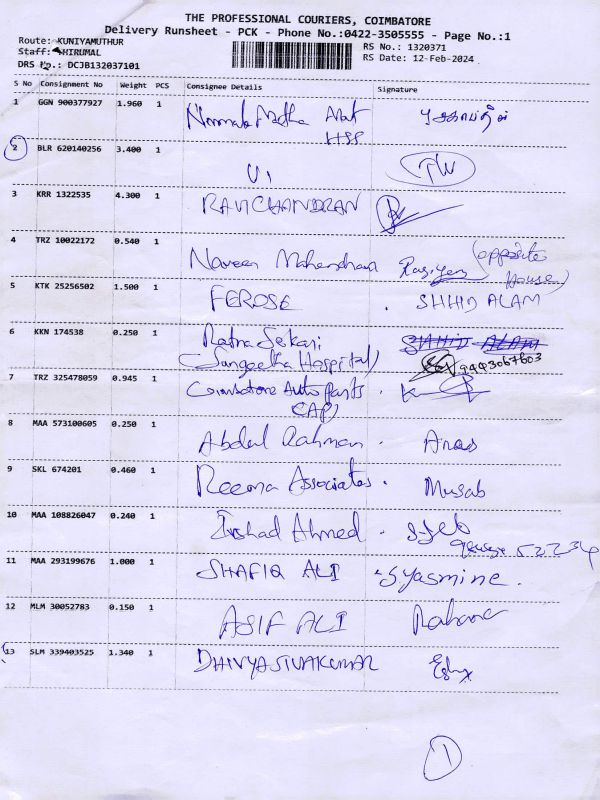 THE PROFESSIONAL COURIERS, COIMBATORE
Delivery Runsheet - PCK - Phone No.:0422-3505555 - Page No.:1
Route: KUNIYAMUTHUR
RS No.: 1320371
Staff: HIRUMAL
RS Date: 12-Feb-2024
DRS No.: DCJB132037101
S No Consignment No Weight PCS Consignee Details Signature
1 GGN 900377927 1.960 1 Nirmala Matha
HSS
2 BLR 620140256 3.400 1
3 KRR 1322535 4.300 1 RAVICHANDRAN
4 TRZ 10022172 0.540 1 Naveen Mahendran (opposite
house)
5 KTK 25256502 1.500 1 FEROSE . SHHID ALAM
6 KKN 174538 0.250 1 Ratna Sekari SHHID ALAM
(Sangeetha Hospital) 9443067603
7 TRZ 325478059 0.945 1 Coimbatore Auto Parts
CAP)
8 MAA 573100605 0.250 1 Abdul Rahman . Anas
9 SKL 674201 0.460 1 Reema Associates . Musab
10 MAA 108826047 0.240 1 Irshad Ahmed .
52234
11 MAA 293199676 1.000 1 SHAFIQ ALI Syasmine.
12 MLM 30052783 0.150 1 ASIF ALI Rahana
13 SLM 339403525 1.340 1 DHIVYASIVAKUMAR
1